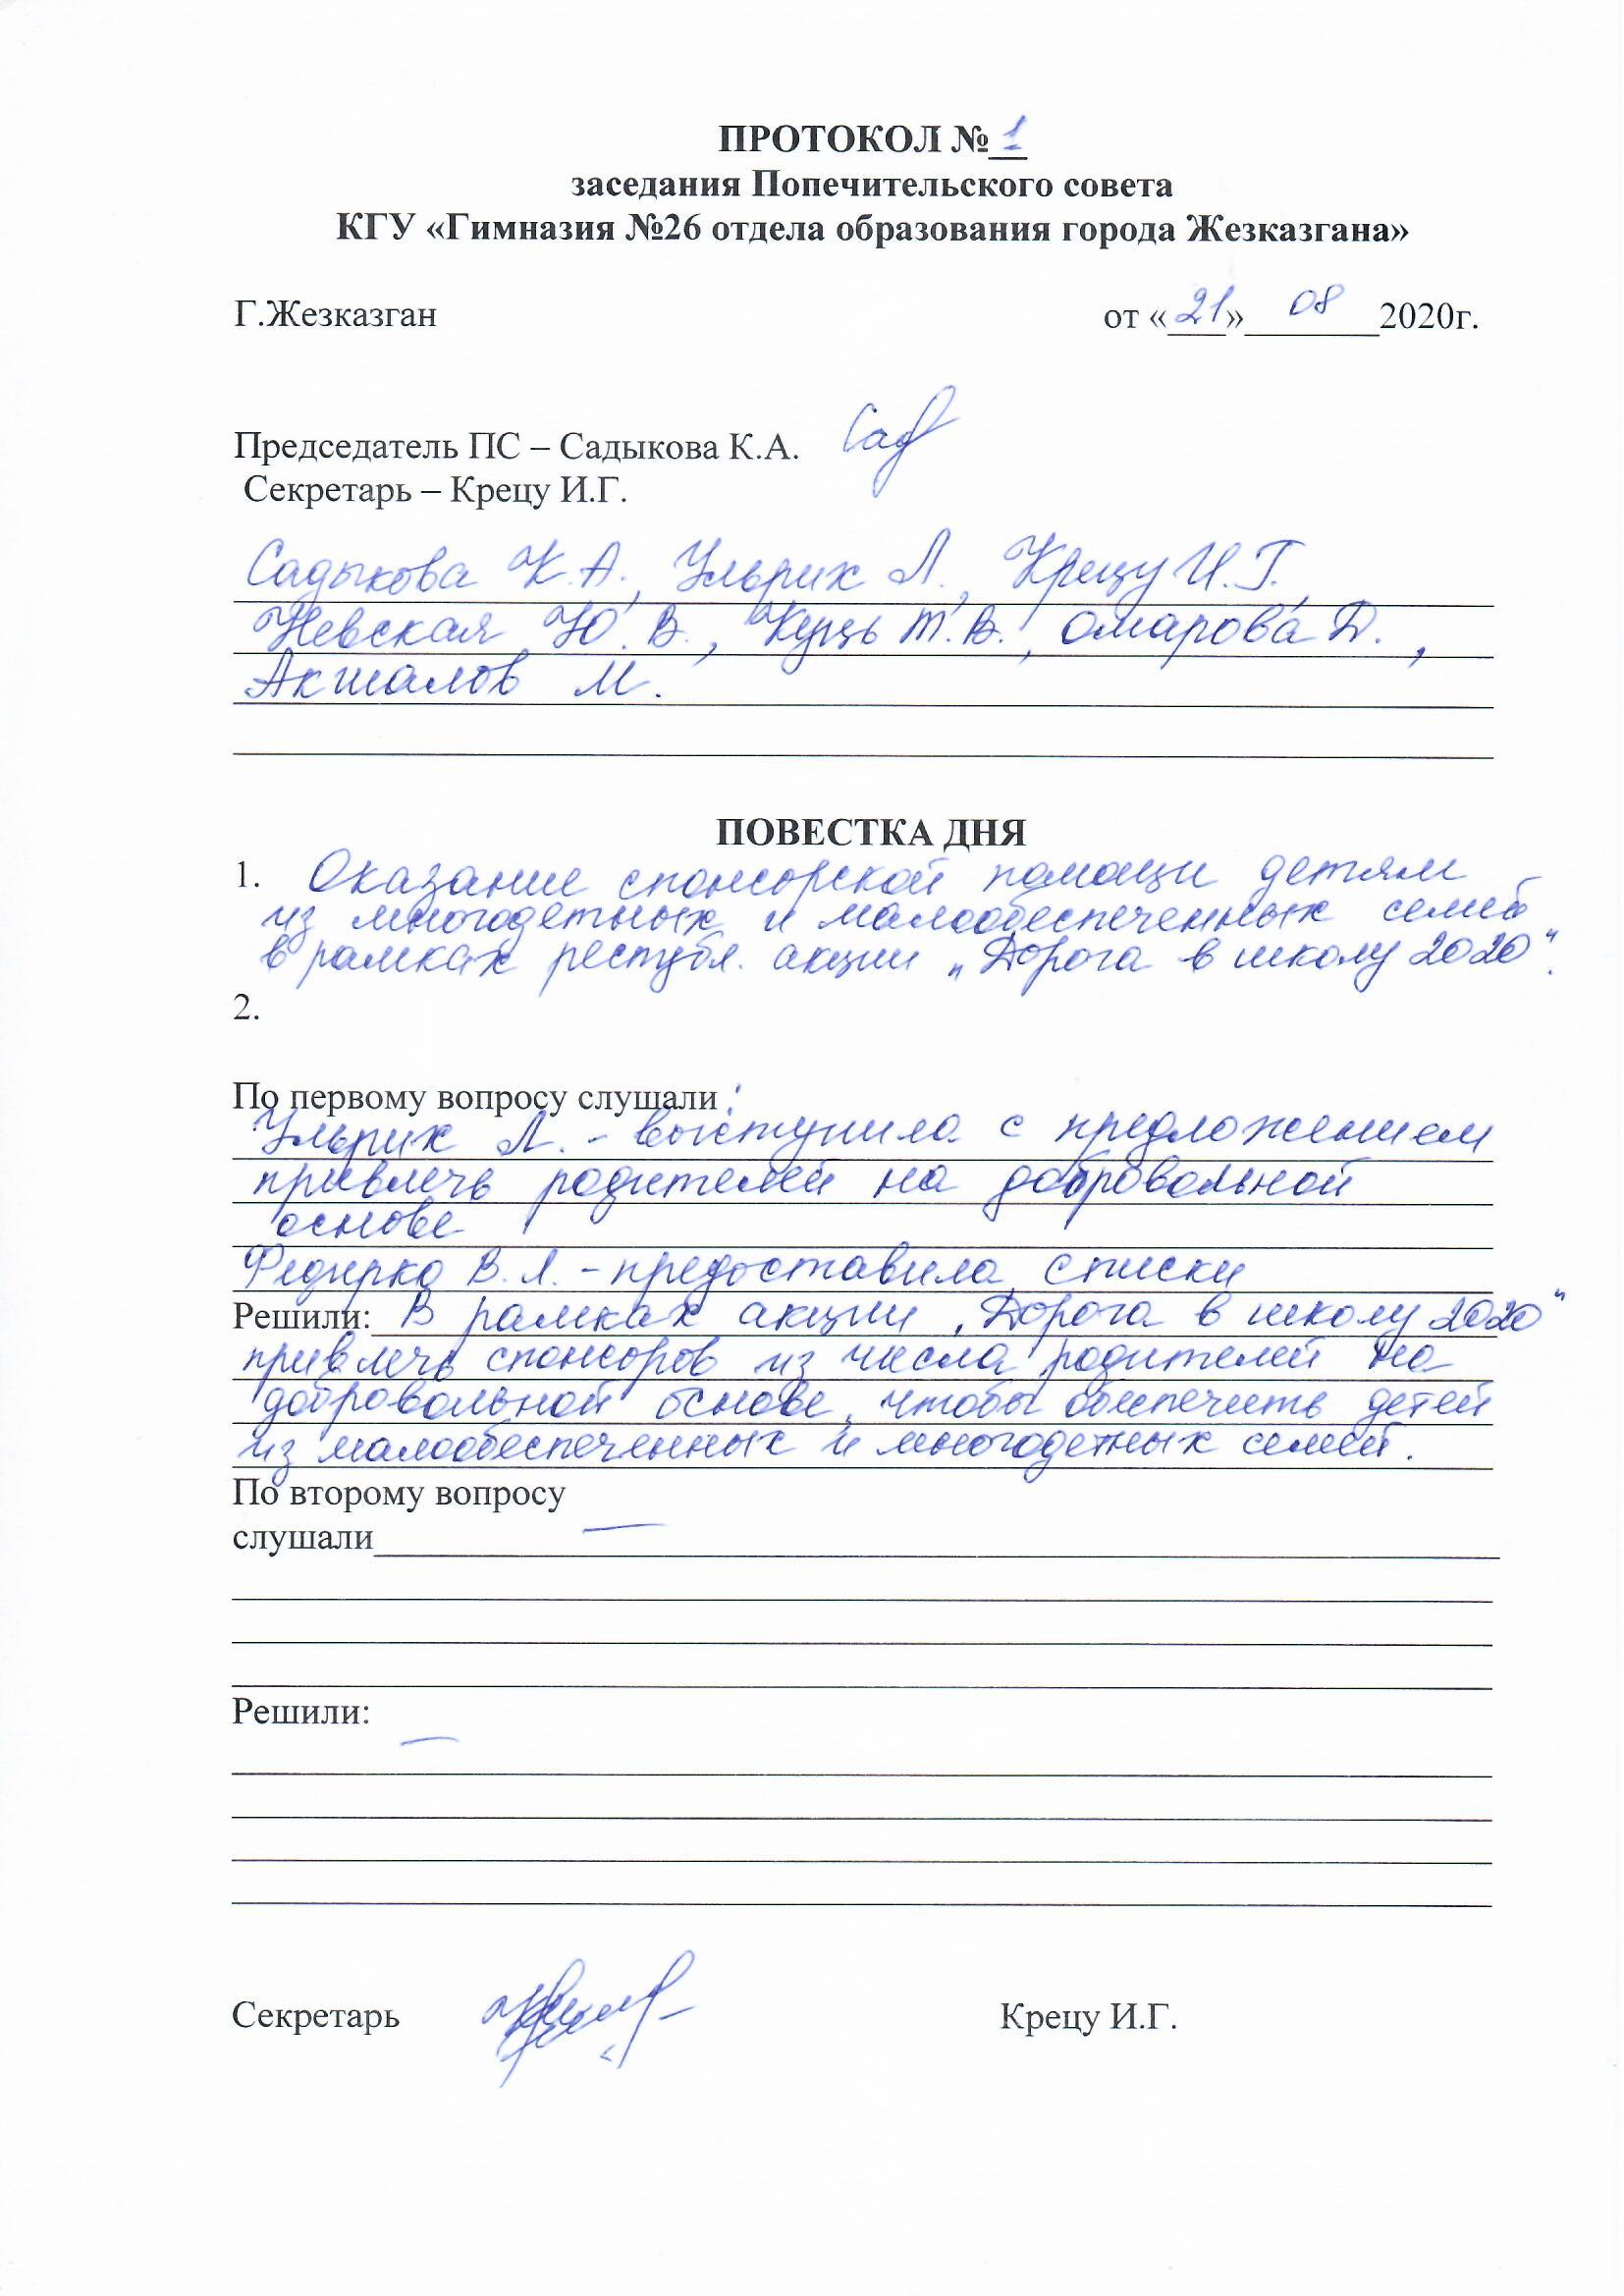 ПРОТОКОЛ № 1
заседания Попечительского совета
КГУ «Гимназия №26 отдела образования города Жезказгана»
Г.Жезказган от «21» 08 2020г.
Председатель ПС – Садыкова К.А.
Секретарь – Крецу И.Г.
Садыкова К.А., Ульрих Л., Крецу И.Г.,
Невская Ю.В., Куць Т.В., Омарова Д.,
Акшалов М.
ПОВЕСТКА ДНЯ
1. Оказание спонсорской помощи детям
из многодетных и малообеспеченных семей
в рамках республ. акции „Дорога в школу 2020“.
2.
По первому вопросу слушали:
Ульрих Л. - выступила с предложением
привлечь родителей на добровольной
основе
Федирко В.Л. - предоставила списки
Решили: В рамках акции „Дорога в школу 2020“
привлечь спонсоров из числа родителей на
добровольной основе, чтобы обеспечить детей
из малообеспеченных и многодетных семей.
По второму вопросу
слушали —
Решили:
—
Секретарь Крецу И.Г.